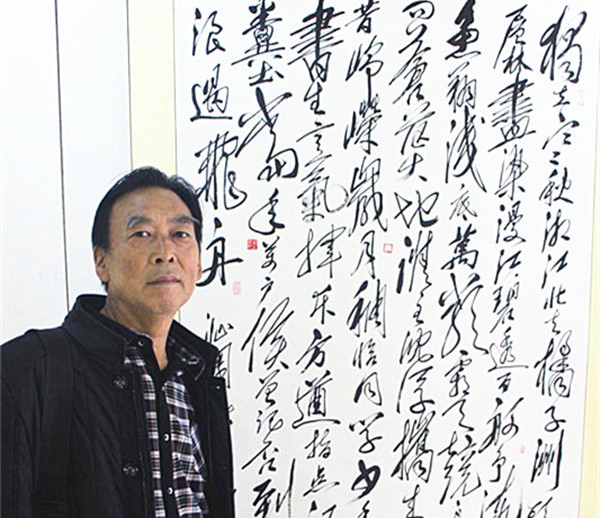 獨立寒秋湘江北去橘子洲
層林盡染漫江碧透百舸爭流
魚翔淺底萬類霜天競
問蒼茫大地誰主沈浮攜來
昔崢嶸歲月稠恰同學少
書生意氣揮斥方遒指点江
糞土當年萬戶侯曾記否到
浪遏飛舟 沁園